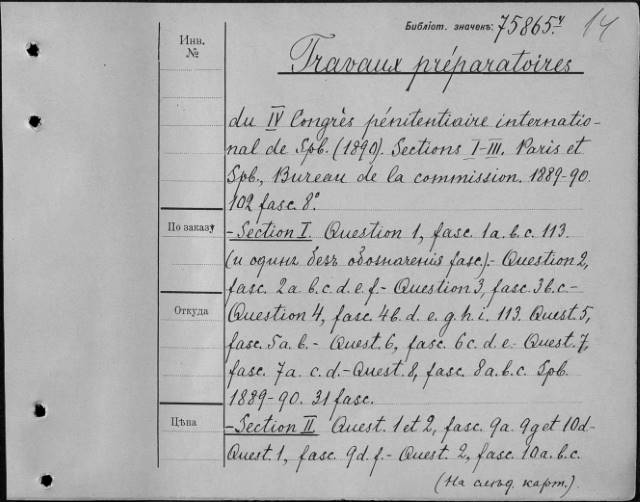 Библіот. значекъ: 75865.ч 14
Инв.
№
Travaux préparatoires
du IV Congrès pénitentiaire internatio-
nal de Spb. (1890). Sections I-III. Paris et
Spb., Bureau de la commission. 1889-90.
102 fasc. 8º.
По заказу
- Section I. Question 1, fasc. 1a. b. c. 113.
(и одинъ безъ обозначенія fasc).- Question 2,
fasc. 2a b. c. d. e. f.- Question 3, fasc. 3b. c.-
Откуда
Question 4, fasc. 4b. d. e. g. h. i. 113. Quest. 5,
fasc. 5a. b.- Quest. 6, fasc. 6c. d. e.- Quest. 7,
fasc. 7a. c. d.- Quest. 8, fasc. 8a. b. c. Spb.
1889-90. 31 fasc.
Цѣна
- Section II. Quest. 1 et 2, fasc. 9a. 9g et 10d-
Quest. 1, fasc. 9d. f.- Quest. 2, fasc. 10a. b. c.
(На слѣд. карт.)